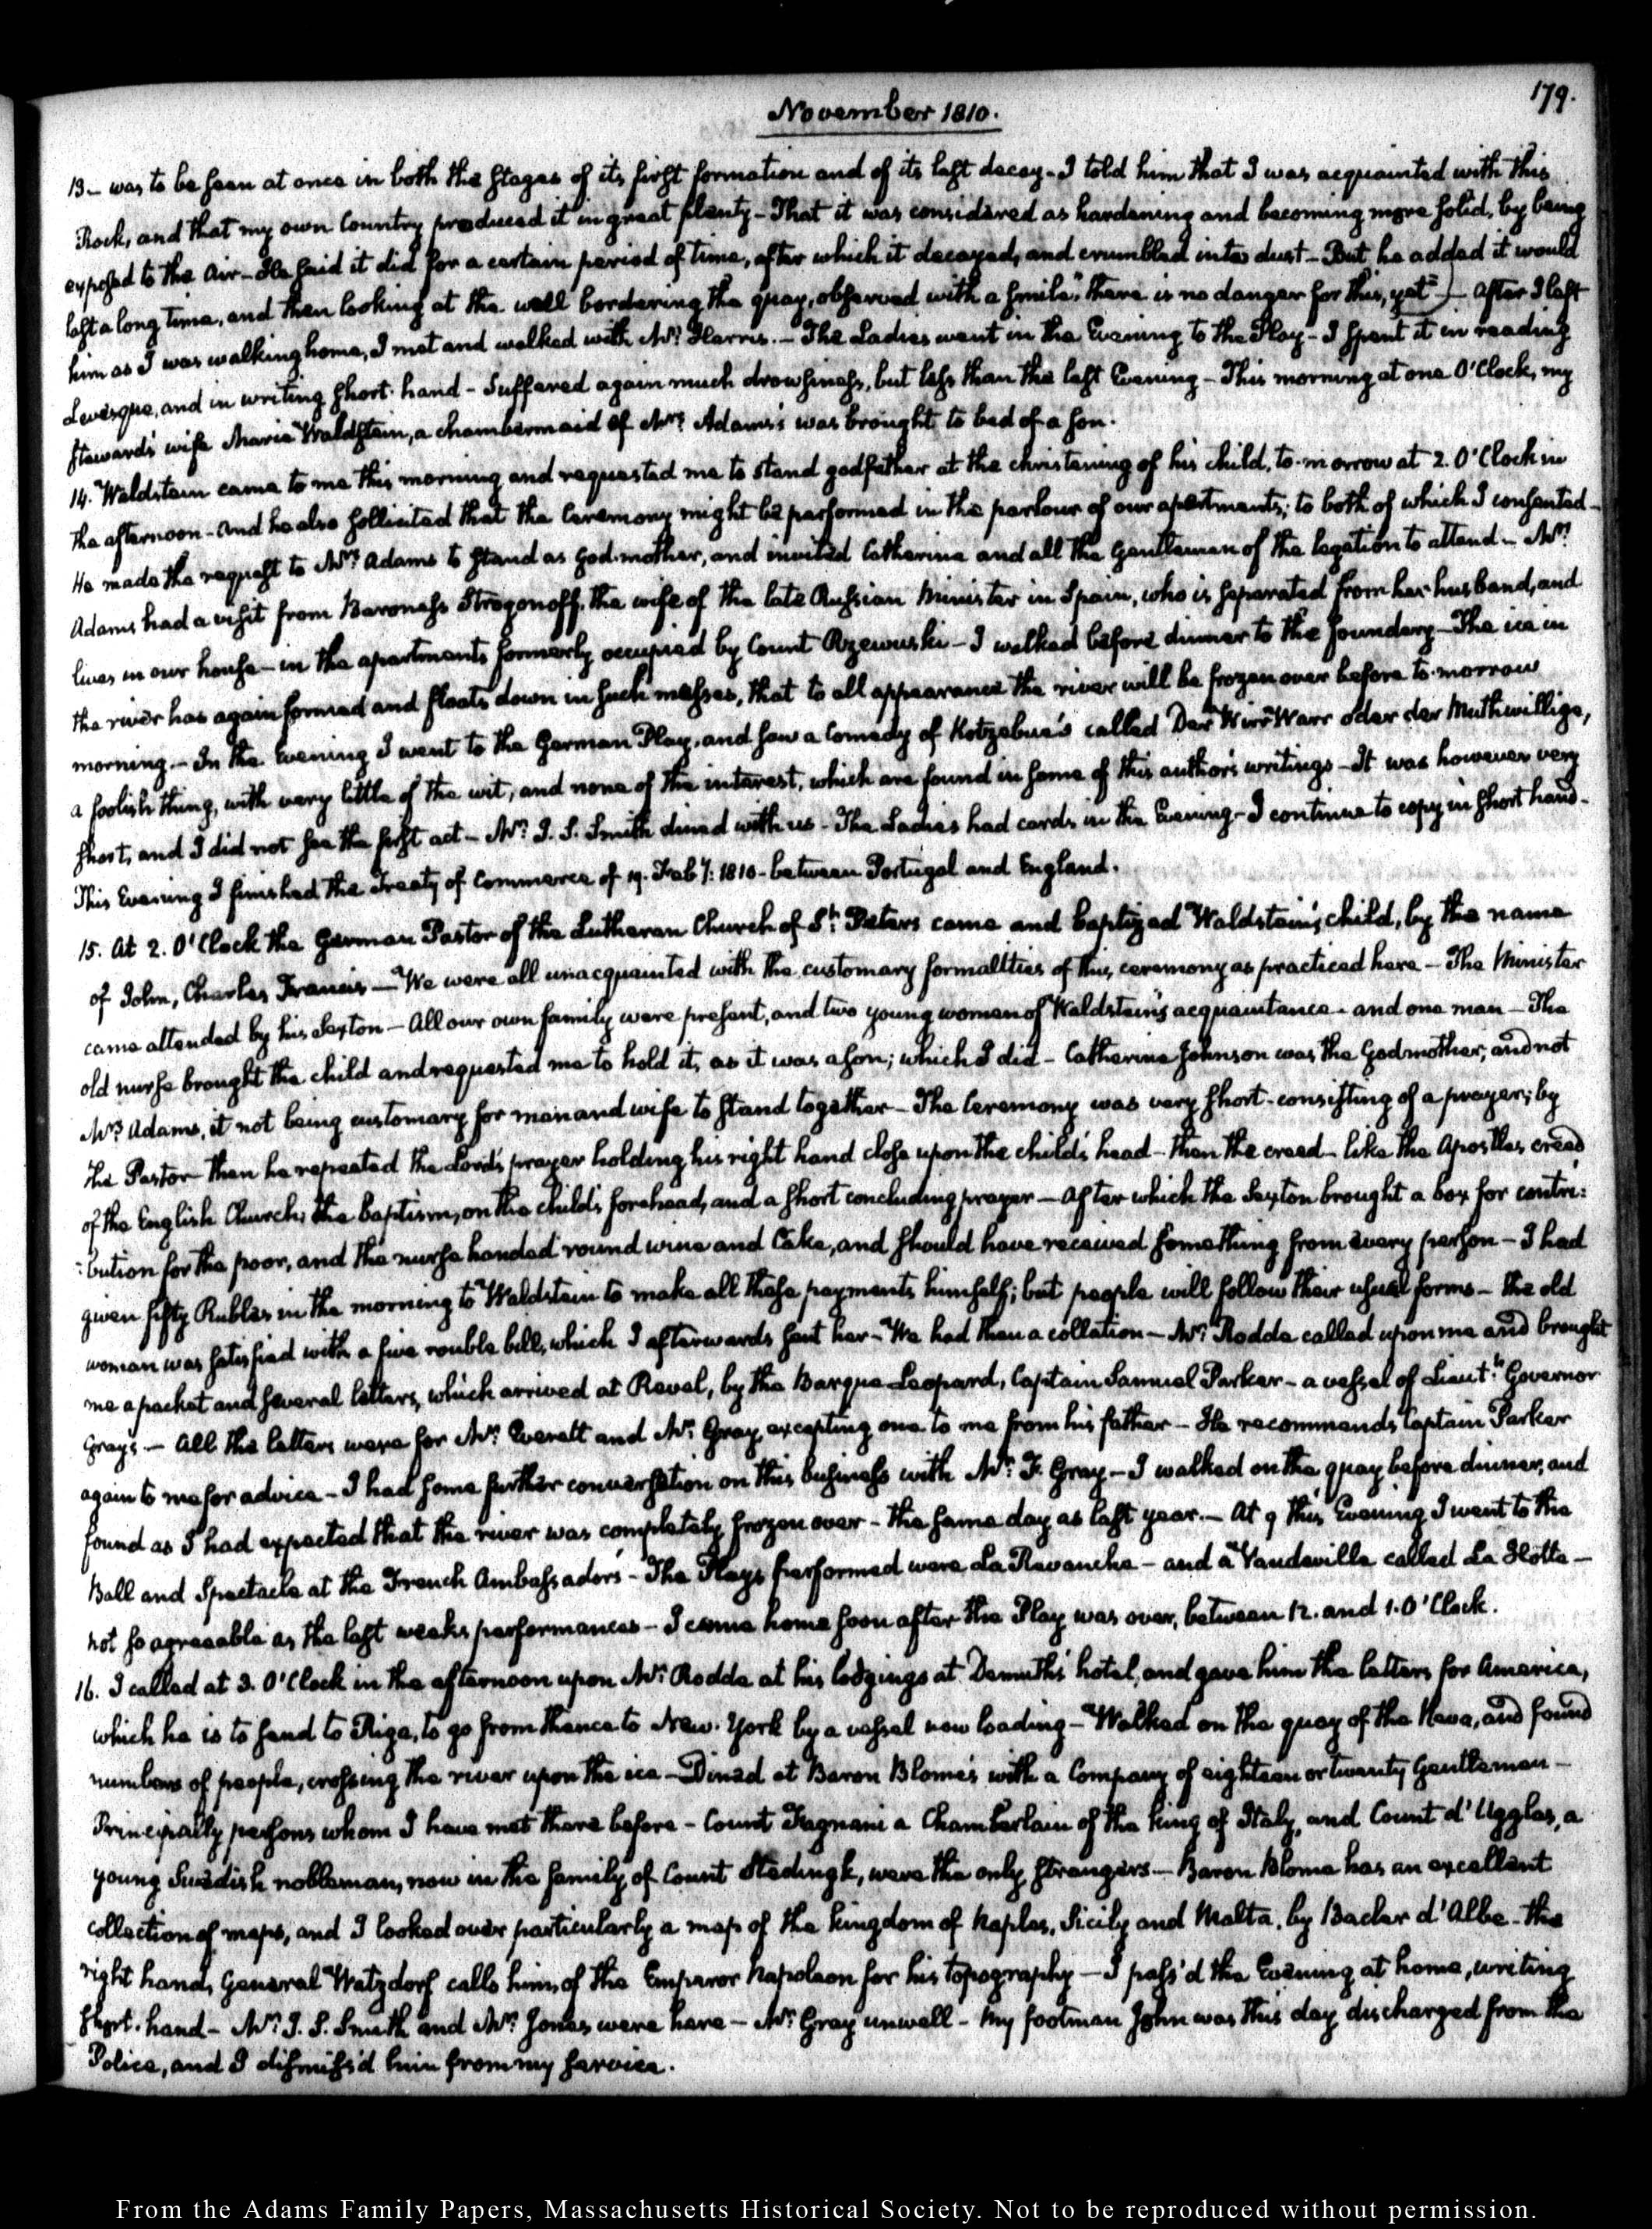 179.
November 1810.
13 — was to be seen at once in both the stages of its first formation and of its last decay — I told him that I was acquainted with this
Rock, and that my own Country produced it in great plenty — That it was considered as hardening and becoming more solid, by being
exposed to the air — He said it did for a certain period of time, after which it decayed, and crumbled into dust — But he added it would
last a long time, and then looking at the wall bordering the quay, observed with a smile, "there is no danger for this, yet" — After I left
him as I was walking home, I met and walked with Mr: Harris. — The Ladies went in the Evening to the Play — I spent it in reading
Levesque, and in writing short-hand — Suffered again much drowsiness, but less than the last Evening — This morning at one O'Clock, my
steward's wife Maria Waldstein, a chambermaid of Mrs: Adams's was brought to bed of a son.
14. Waldstein came to me this morning and requested me to stand godfather at the christening of his child, to-morrow at 2. O'Clock in
the afternoon — And he also sollicited that the Ceremony might be performed in the parlour of our apartments; to both of which I consented —
He made the request to Mrs: Adams to stand as God-mother, and invited Catherine and all the Gentlemen of the legation to attend — Mrs:
Adams had a visit from Baroness Strogonoff, the wife of the late Russian Minister in Spain, who is separated from her husband, and
lives in our house — in the apartments formerly occupied by Count Rzewuski — I walked before dinner to the foundery — The ice in
the river has again formed and floats down in such masses, that to all appearance the river will be frozen over before to-morrow
morning. — In the Evening I went to the German Play, and saw a Comedy of Kotzebue's called Der Wirr Warr oder der Muthwillige,
a foolish thing, with very little of the wit, and none of the interest, which are found in some of this author's writings — It was however very
short, and I did not see the first act — Mr: J. S. Smith dined with us — The Ladies had cards in the Evening — I continue to copy in short hand —
This Evening I finished the Treaty of Commerce of 19. Feby: 1810 — between Portugal and England.
15. At 2. O'Clock the German Pastor of the Lutheran Church of St: Peters came and baptized Waldstein's child, by the name
of John, Charles Francis — We were all unacquainted with the customary formalities of this ceremony as practiced here — The Minister
came attended by his Sexton — All our own family were present, and two young women of Waldstein's acquaintance — and one man — The
old nurse brought the child and requested me to hold it, as it was a son; which I did — Catherine Johnson was the Godmother, and not
Mrs: Adams, it not being customary for man and wife to stand together — The Ceremony was very short — consisting of a prayer, by
the Pastor — then he repeated the Lord's prayer holding his right hand close upon the child's head — then the creed — like the Apostles creed
of the English Church; the baptism, on the child's forehead, and a short concluding prayer — After which the Sexton brought a box for contri:
:bution for the poor, and the nurse handed round wine and Cake, and should have received something from every person — I had
given fifty Rubles in the morning to Waldstein to make all these payments himself; but people will follow their usual forms — the old
woman was satisfied with a five rouble bill, which I afterwards sent her — We had then a collation — Mr: Rodde called upon me and brought
me a packet and several letters, which arrived at Reval, by the Barque Leopard, Captain Samuel Parker — a vessel of Lieutt: Governor
Gray's — All the letters were for Mr: Everett and Mr: Gray, excepting one to me from his father — He recommends Captain Parker
again to me for advice — I had some further conversation on this business with Mr: F. Gray — I walked on the quay before dinner, and
found as I had expected that the river was completely frozen over — the same day as last year. — At 9 this Evening I went to the
Ball and Spectacle at the French Ambassador's — The Plays performed were La Revanche — and a Vaudeville called La Hotte —
not so agreeable as the last week's performances — I came home soon after the Play was over, between 12. and 1. O'Clock.
16. I called at 3. O'Clock in the afternoon upon Mr: Rodde at his lodgings at Demuth's hotel, and gave him the letters for America,
which he is to send to Riga, to go from thence to New-York by a vessel now loading — Walked on the quay of the Neva, and found
numbers of people, crossing the river upon the ice — Dined at Baron Blome's with a Company of eighteen or twenty Gentlemen —
Principally persons whom I have met there before — Count Fagnani a Chamberlain of the King of Italy, and Count d'Ugglas, a
young Swedish nobleman, now in the family of Count Stedingk, were the only strangers — Baron Blome has an excellent
collection of maps, and I looked over particularly a map of the kingdom of Naples, Sicily and Malta, by Bacler d'Albe — the
right hand, General Watzdorf calls him, of the Emperor Napoleon for his topography — I pass'd the Evening at home, writing
short-hand — Mr: J. S. Smith and Mr: Jones were here — Mr: Gray unwell — My footman John was this day discharged from the
Police, and I dismiss'd him from my service.
From the Adams Family Papers, Massachusetts Historical Society. Not to be reproduced without permission.